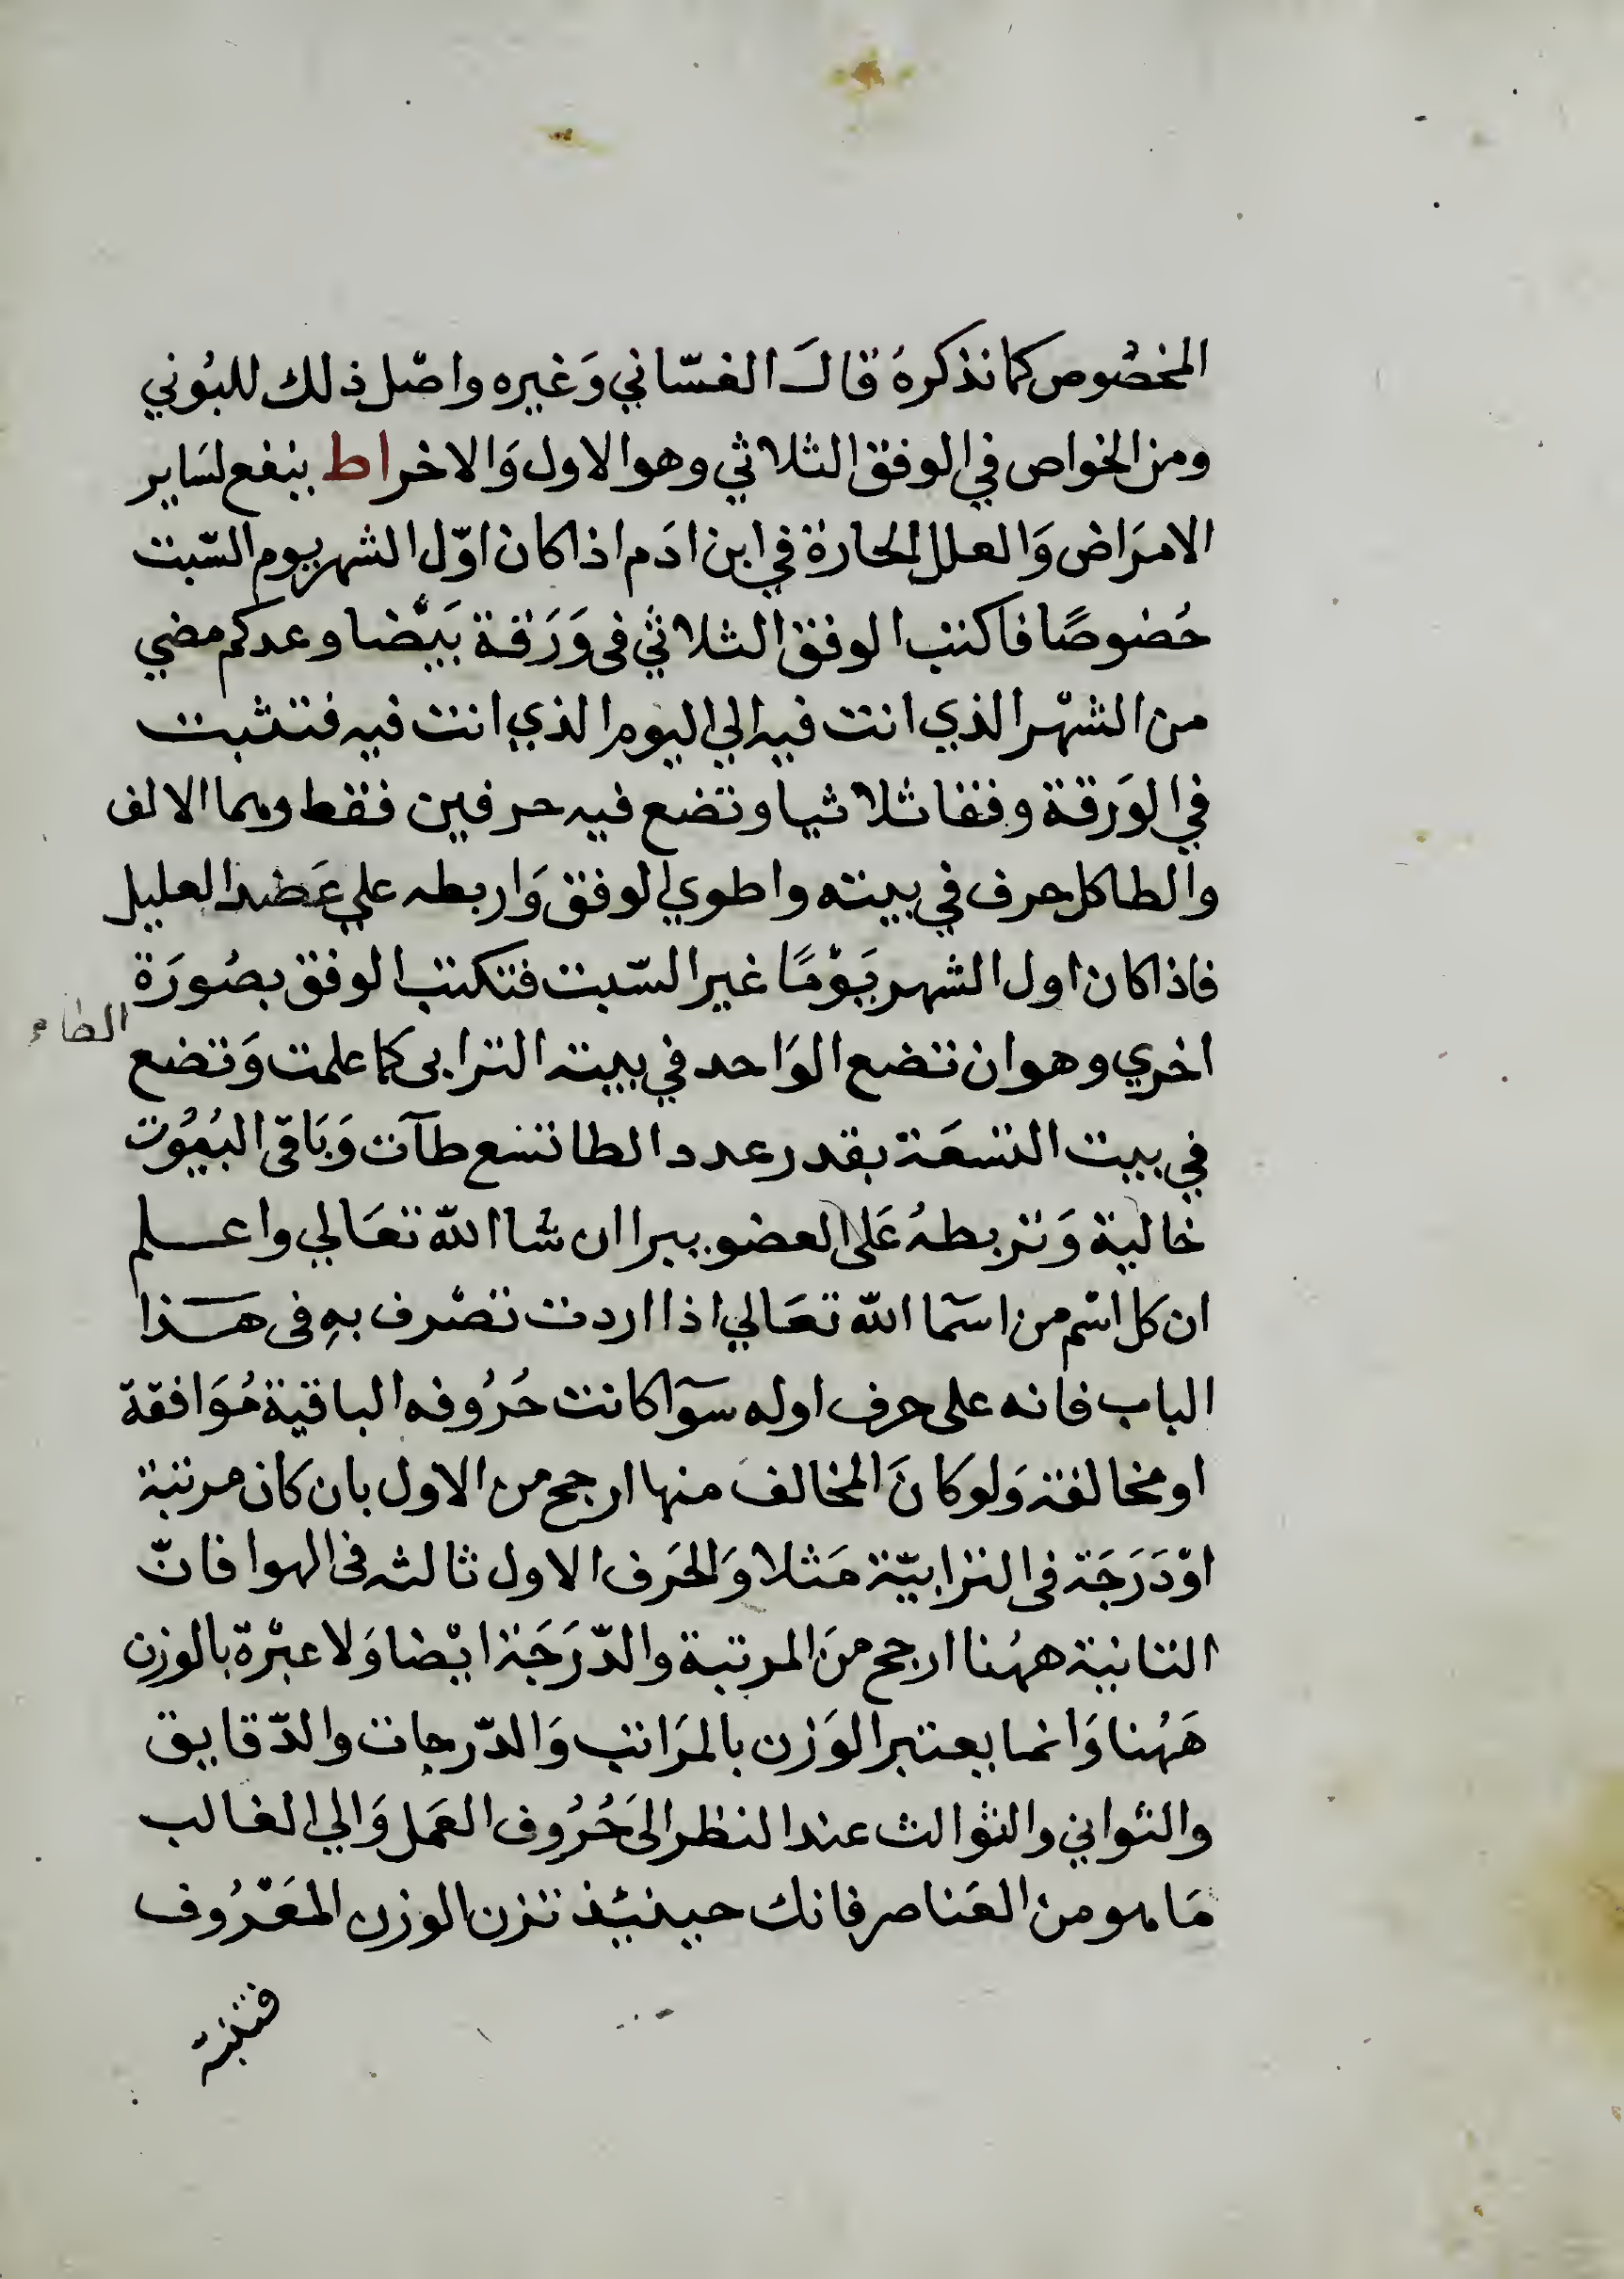 المخصوص كما نذكره قال الغسّاني وَغيره واصْل ذلك للبُوني
ومن الخواص في الوفق الثلاثي وهو الاول وَالاخر اط ينفع لسَاير
الامرَاض وَالعلل الحارة في ابن ادَم اذا كان اوّل الشهر يوم السّبت
خُصوصًا فاكتب الوفق الثلاثي فى وَرَقة بَيْضا وعد كم مضي
من الشهْر الذي انت فيه الي اليوم الذي انت فيه فتثبت
في الوَرقة وفقا ثلاثيا وتضع فيه حرفين فقط وهما الالف
والطا كل حرف في بيته واطوي الوفق وَاربطه علي عَضد العليل
فاذا كان اول الشهر يَوْمًا غير السّبت فتكتب الوفق بصُورَة
الطاء
اخري وهو ان تضع الوَاحد في بيته الترابى كما علمت وَتضع
في بيت التسعَة بقدر عدد الطا تسع طآت وَبَاقى البُيُوت
خالية وَتربطهُ عَلى العضو يبرا ان شا الله تعَالي واعلم
ان كل اسْم من اسمآ الله تعَالي اذا اردت تصْرف بهِ فى هَذا
الباب فانه على حرف اوله سوآ كانت حُرُوفه الباقية مُوَافقة
او مخالفة وَلو كانَ المخالف منها ارجح من الاول بان كان مرتبة
اوْ دَرَجَة فى الترابيّة مَثلا وَالحَرف الاول ثالثه فى الهوا فانّ
الثانية ههُنا ارجح منَ المرتبة والدّرَجَة ايْضا وَلا عبْرة بالوزن
هَهُنا وَانما يعتبر الوَزن بالمرَاتب وَالدّرجات والدّقايق
والثواني والثوالث عند النظر الىَ حُرُوف العَمل وَالي الغالب
مَا هو من العَناصر فانك حينئِذ تزن الوزن المعَرُوف
فتثبته